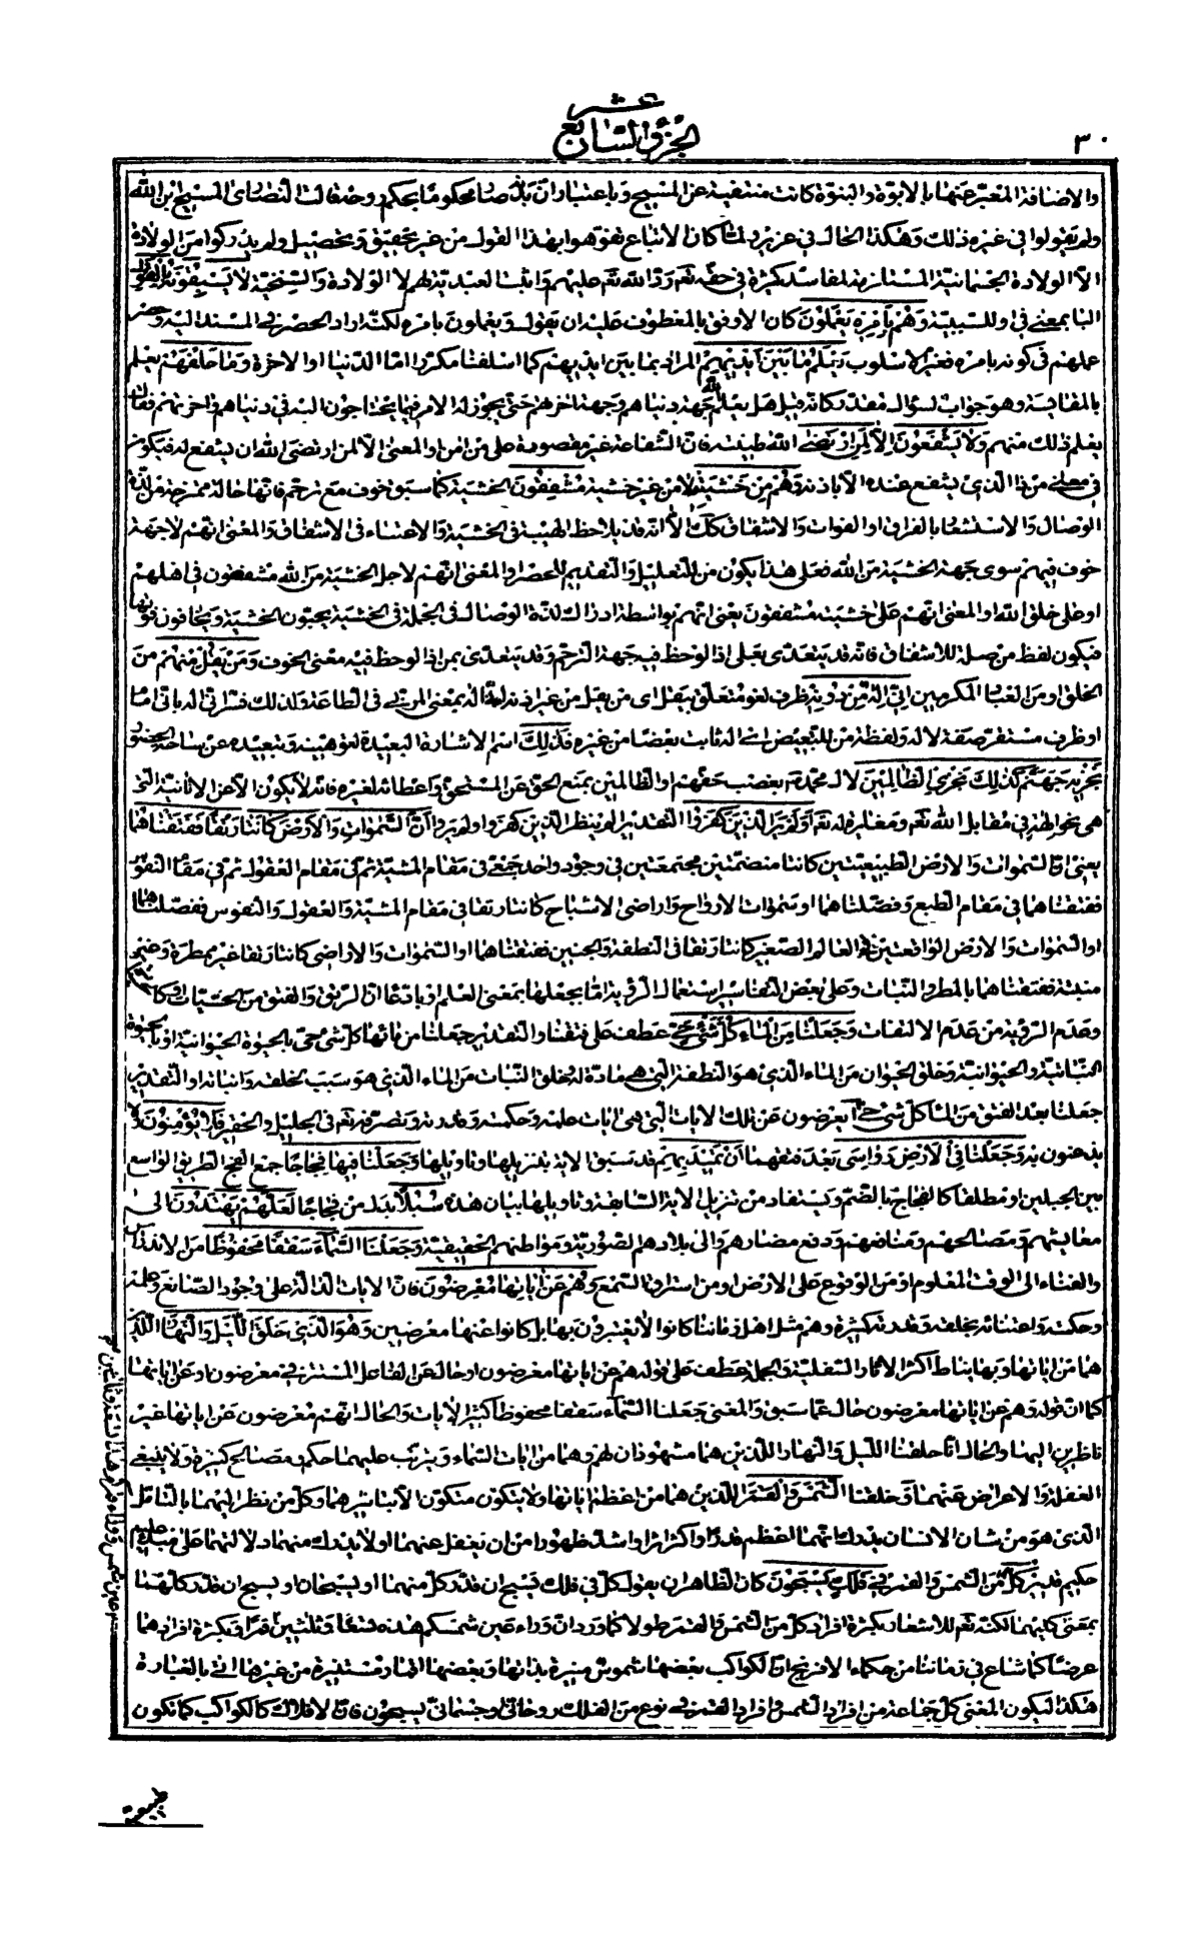 ٣٠
الجزؤ السابع عشر
والاضافة المعبر عنها بالابوة والبنوة كانت منتفية عن المسيح وباعتبار ان بدنه صار محكوما بحكم وحدة قالت النصارى المسيح ابن الله
ولم يقولوا في غيره ذلك وهكذا الحال في عزير ولما كان الاتباع تفوهوا بهذا القول من غير تحقيق وتحصيل ولم يدركوا من الولادة
الا الولادة الجسمانية المستلزمة لمفاسد كثيرة في حقه تعم رد الله تعم عليهم واثبت العبدية لهم لا الولادة والسنخية لا يسبقونه بالقول
الباء بمعنى في او للسببية وهم بامره يعملون كان الاوفق بالمعطوف عليه ان يقول ويعملون بامره لكنه اراد الحصر في المسند اليه وحصر
عملهم في كونه بامره فغير الاسلوب يعلم ما بين ايديهم المراد بما بين ايديهم كما اسلفنا مكررا اما الدنيا او الاخرة وما خلفهم يعلم
بالمقايسة وهو جواب لسؤال مقدر كانه قيل هل يعلم الله جهة دنياهم وجهة اخرهم حتى يجوز له الامر فيما يحتاجون اليه في دنياهم واخرتهم فقال
يعلم ذلك منهم ولا يشفعون الا لمن ارتضى الله طينته فان الشفاعة غير مقصورة على من امن او المعنى الا لمن ارتضى الله ان يشفع له فيكون
في معنى من ذا الذي يشفع عنده الا باذنه وهم من خشيته لا من غير خشية مشفقون الخشية كما سبق خوف مع ترحم فانها حالة ممتزجة من لذة
الوصال والاستشفاء بالفراق او الفوات والاشفاق كك الا انه قد يلاحظ الهيبة في الخشية والاعتناء في الاشفاق والمعنى انهم لا جهة
خوف فيهم سوى جهة الخشية من الله فعلى هذا يكون من للتعليل والتقديم للحصر او المعنى انهم لاجل الخشية من الله مشفقون في اهلهم
او على خلق الله او المعنى انهم على خشيته مشفقون يعنى انهم بواسطة ادراك لذة الوصال في الجملة في الخشية يحبون الخشية ويخافون فوتها
فيكون لفظ من صلة للاشفاق فانه قد يتعدى بعلى اذا لوحظ فيه جهة الترحم وقد يتعدى بمن اذا لوحظ فيه معنى الخوف ومن يقل منهم من
الخلق او من العباد المكرمين انى اله من دونه ظرف لغو متعلق بيقل اى من يقل من غير اذنه انى اله بمعنى المربى في الطاعة ولذلك فسر انى اله بانى امام
او ظرف مستقر صفة لاله ولفظة من للتبعيض اى اله ثابت بعضا من غيره فذلك اسم الاشارة البعيدة لتوهينه وتبعيده عن ساحة الحضور
نجزيه جهنم كذلك نجزى الظالمين لال محمد بغصب حقهم او الظالمين بمنع الحق عن المستحق واعطائه لغيره فانه لا يكون الا عن الانانية التى
هى نحو اله في مقابل الله تعم ومغاير له تعم اولم ير الذين كفروا التقدير الم ينظر الذين كفروا ولم يروا ان السموات والارض كانتا رتقا ففتقناهما
يعنى ان السموات والارض الطبيعيتين كانتا منضمتين مجتمعتين في وجود واحد جمعى في مقام المشية ثم في مقام العقول ثم في مقام النفوس
ففتقناهما في مقام الطبع وفصلناهما او سموات الارواح واراضى الاشباح كانتا رتقا في مقام المشية والعقول والنفوس ففصلناهما
او السموات والارض الواقعتين في العالم الصغير كانتا رتقا في النطفة والجنين ففتقناهما او السموات والاراضى كانتا رتقا غير ممطرة وغير
منبتة ففتقناهما بالمطر والنبات وعلى بعض التفاسير استعمال الرؤية اما بجعلها بمعنى العلم او بادعاء ان الرتق والفتق من الحسيات
وعدم الرؤية من عدم الالتفات وجعلنا من الماء كل شئ حى عطف على فتقنا والتقدير جعلنا من مائها كل شئ حى بالحيوة الحيوانية او بالحيوة
النباتية والحيوانية وخلق الحيوان من الماء الذى هو النطفة التى هى مادة له وخلق النبات من الماء الذى هو سبب لخلقه وانباته او التقدير
جعلنا بعد الفتق من الماء كل شئ حى ايعرضون عن تلك الايات التى هى ايات علمه وحكمته وقدرته وتصرفه تعم في الجليل والحقير فلا يؤمنون ولا
يذعنون به وجعلنا في الارض رواسى بعد فتقهما ان تميد بهم قد سبق الاية بتنزيلها وتاويلها وجعلنا فيها فجاجا جمع الفج الطريق الواسع
بين الجبلين او مطلقا كالفجاج بالضم ويستفاد من تنزيل الاية السابقة وتاويلها بيان هذه سبلا بدل من فجاجا لعلهم يهتدون الى
معايشهم ومصالحهم ومنافعهم ودفع مضارهم والى بلادهم الصورية ومواطنهم الحقيقية وجعلنا السماء سقفا محفوظا من الاندراس
والفناء الى الوقت المعلوم او من الوقوع على الارض او من استراق السمع وهم عن اياتها معرضون فان الايات الدالة على وجود الصانع وعلمه
وحكمته واعتنائه بخلقه وقدرته كثيرة وهم مثل اهل زماننا كانوا لا يعتبرون بها بل كانوا عنها معرضين وهو الذى خلق الليل والنهار اللذين
هما من اياتها وبها يناط اكثر الاثار السفلية والجملة عطف على قوله هم عن اياتها معرضون او حال عن الفاعل المستتر في معرضون او عن اياتها
كما ان قوله وهم عن اياتها معرضون حال عما سبق والمعنى جعلنا السماء سقفا محفوظا كثير الايات والحال انهم معرضون عن اياتها غير
ناظرين اليها والحال انا خلقنا الليل والنهار اللذين هما مشهودان لهم وهما من ايات السماء ويترتب عليهما حكم ومصالح كثيرة ولا ينبغى
الغفلة والاعراض عنهما وخلقنا الشمس والقمر اللذين هما من اعظم اياتها ولا يتكون متكون الا بتاثيرهما وكل من نظر اليهما بالتامل
الذى هو من شان الانسان يدرك انهما اعظم قدرا واكثر اثرا واشد ظهورا من ان يغفل عنهما او لا يدرك منهما دلالتهما على مبدء عليم
حكيم قدير كل من الشمس والقمر في فلك يسبحون كان الظاهر ان يقول كل في فلك يسبح ان قدر كل منهما او يسبحان او يسبح ان قدر كلهما
بمعنى كليهما لكنه تعم للاشعار بكثرة افراد كل من الشمس والقمر طولا كما ورد ان وراء عين شمسكم هذه تسعا وثلثين قمرا وبكثرة افرادهما
عرضا كما شاع في زماننا من حكماء الافرنج ان الكواكب بعضها شموس منيرة بذاتها وبعضها اقمار مستنيرة من غيرها اتى بالعبارة
هكذا ليكون المعنى كل جماعة من افراد الشمس وافراد القمر في نوع من الفلك روحانى وجسمانى يسبحون فان الافلاك كالكواكب كما تكون
طبيعية